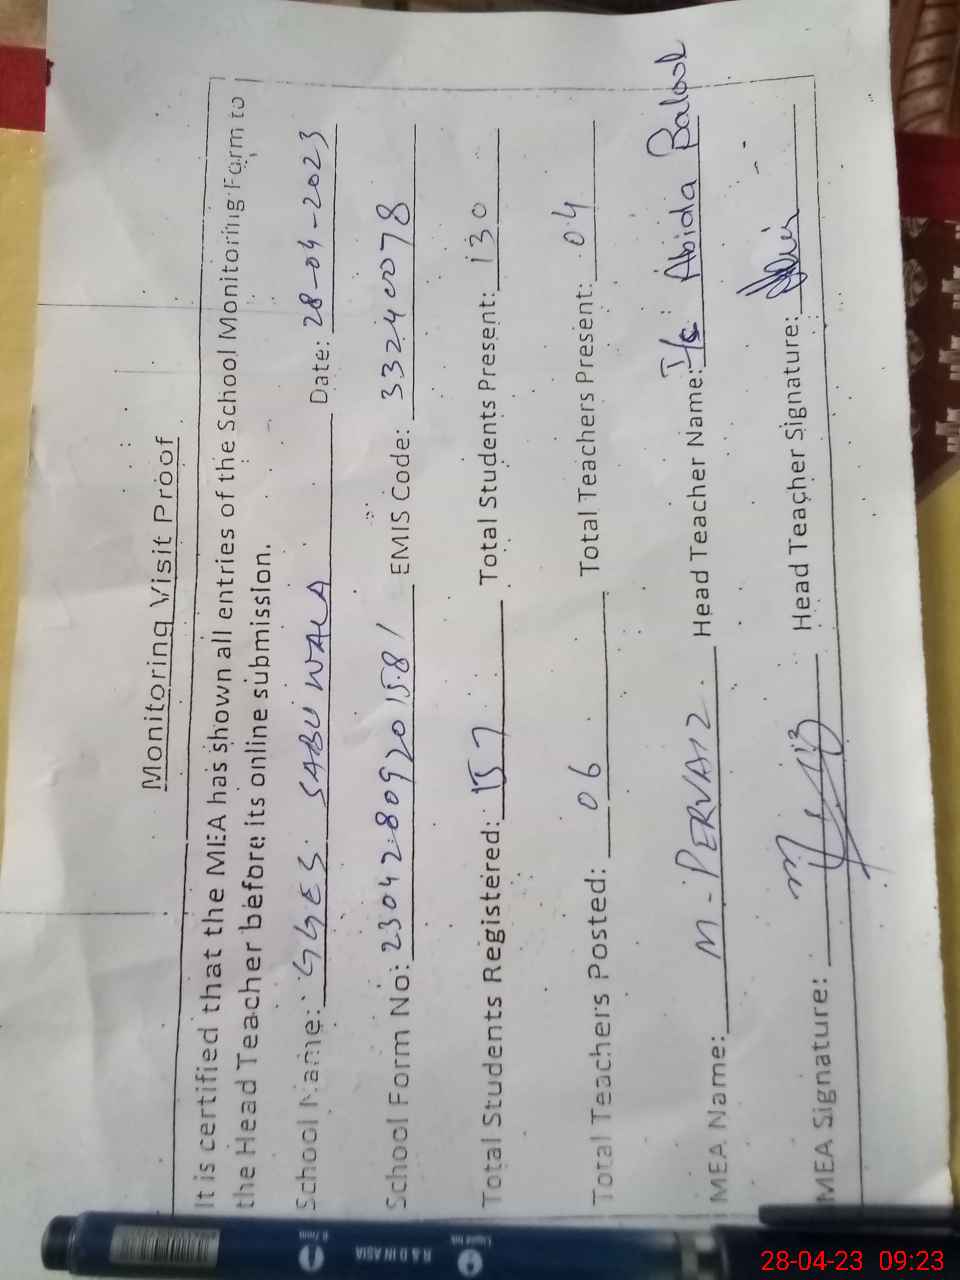 Monitoring Visit Proof
It is certified that the MEA has shown all entries of the School Monitoring Form to
the Head Teacher before its online submission.
School Name: GGES SABU WALA Date: 28-04-2023
School Form No: 23042809201581 EMIS Code: 33240078
Total Students Registered: 157 Total Students Present: 130
Total Teachers Posted: 06 Total Teachers Present: 04
MEA Name: M-PERVAIZ Head Teacher Name: I/C: Abida Balool
MEA Signature: Head Teacher Signature:
0.7mm
R & D IN ASIA
Liquid Ink
28-04-23 09:23